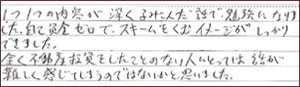 1つ1つの内容が深くふみこんだ話で、勉強になりま
した。自己資金ゼロで、スキームをくむイメージがしっかり
できました。
全く不動産投資をしたことのない人にとっては 絵が
難しく感じてしまうのではないかと思いました。